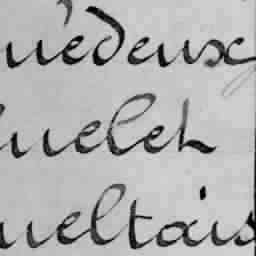 uédeux
uelet
ueltais